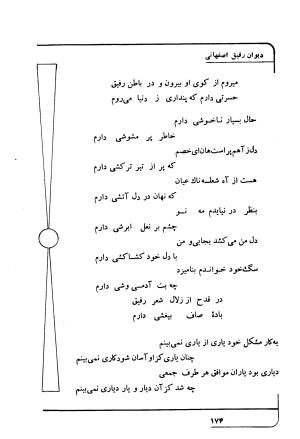 دیوان رفیق اصفهانی
میروم از کوی او بیرون و در باطن رفیق
حسرتی دارم که پنداری ز دنیا میروم
حال بسیار ناخوشی دارم
خاطر پر مشوشی دارم
دل ز آهم پر است هان ای خصم
که پر از تیر ترکشی دارم
هست از آه شعله ناك عیان
که نهان در دل آتشی دارم
بنظر در نیایدم مه نو
چشم بر نعل ابرشی دارم
دل من می کشد بجایی و من
با دل خود کشاکشی دارم
سگ خود خواندم بنامیزد
چه بت آدمی وشی دارم
در قدح از زلال شعر رفیق
بادهٔ صاف بیغشی دارم
به کار مشکل خود یاری از یاری نمی بینم
چنان یاری کزاو آسان شود کاری نمی بینم
دیاری بود یاران موافق هر طرف جمعی
چه شد کز آن دیار و یار دیاری نمی بینم
۱۷۴